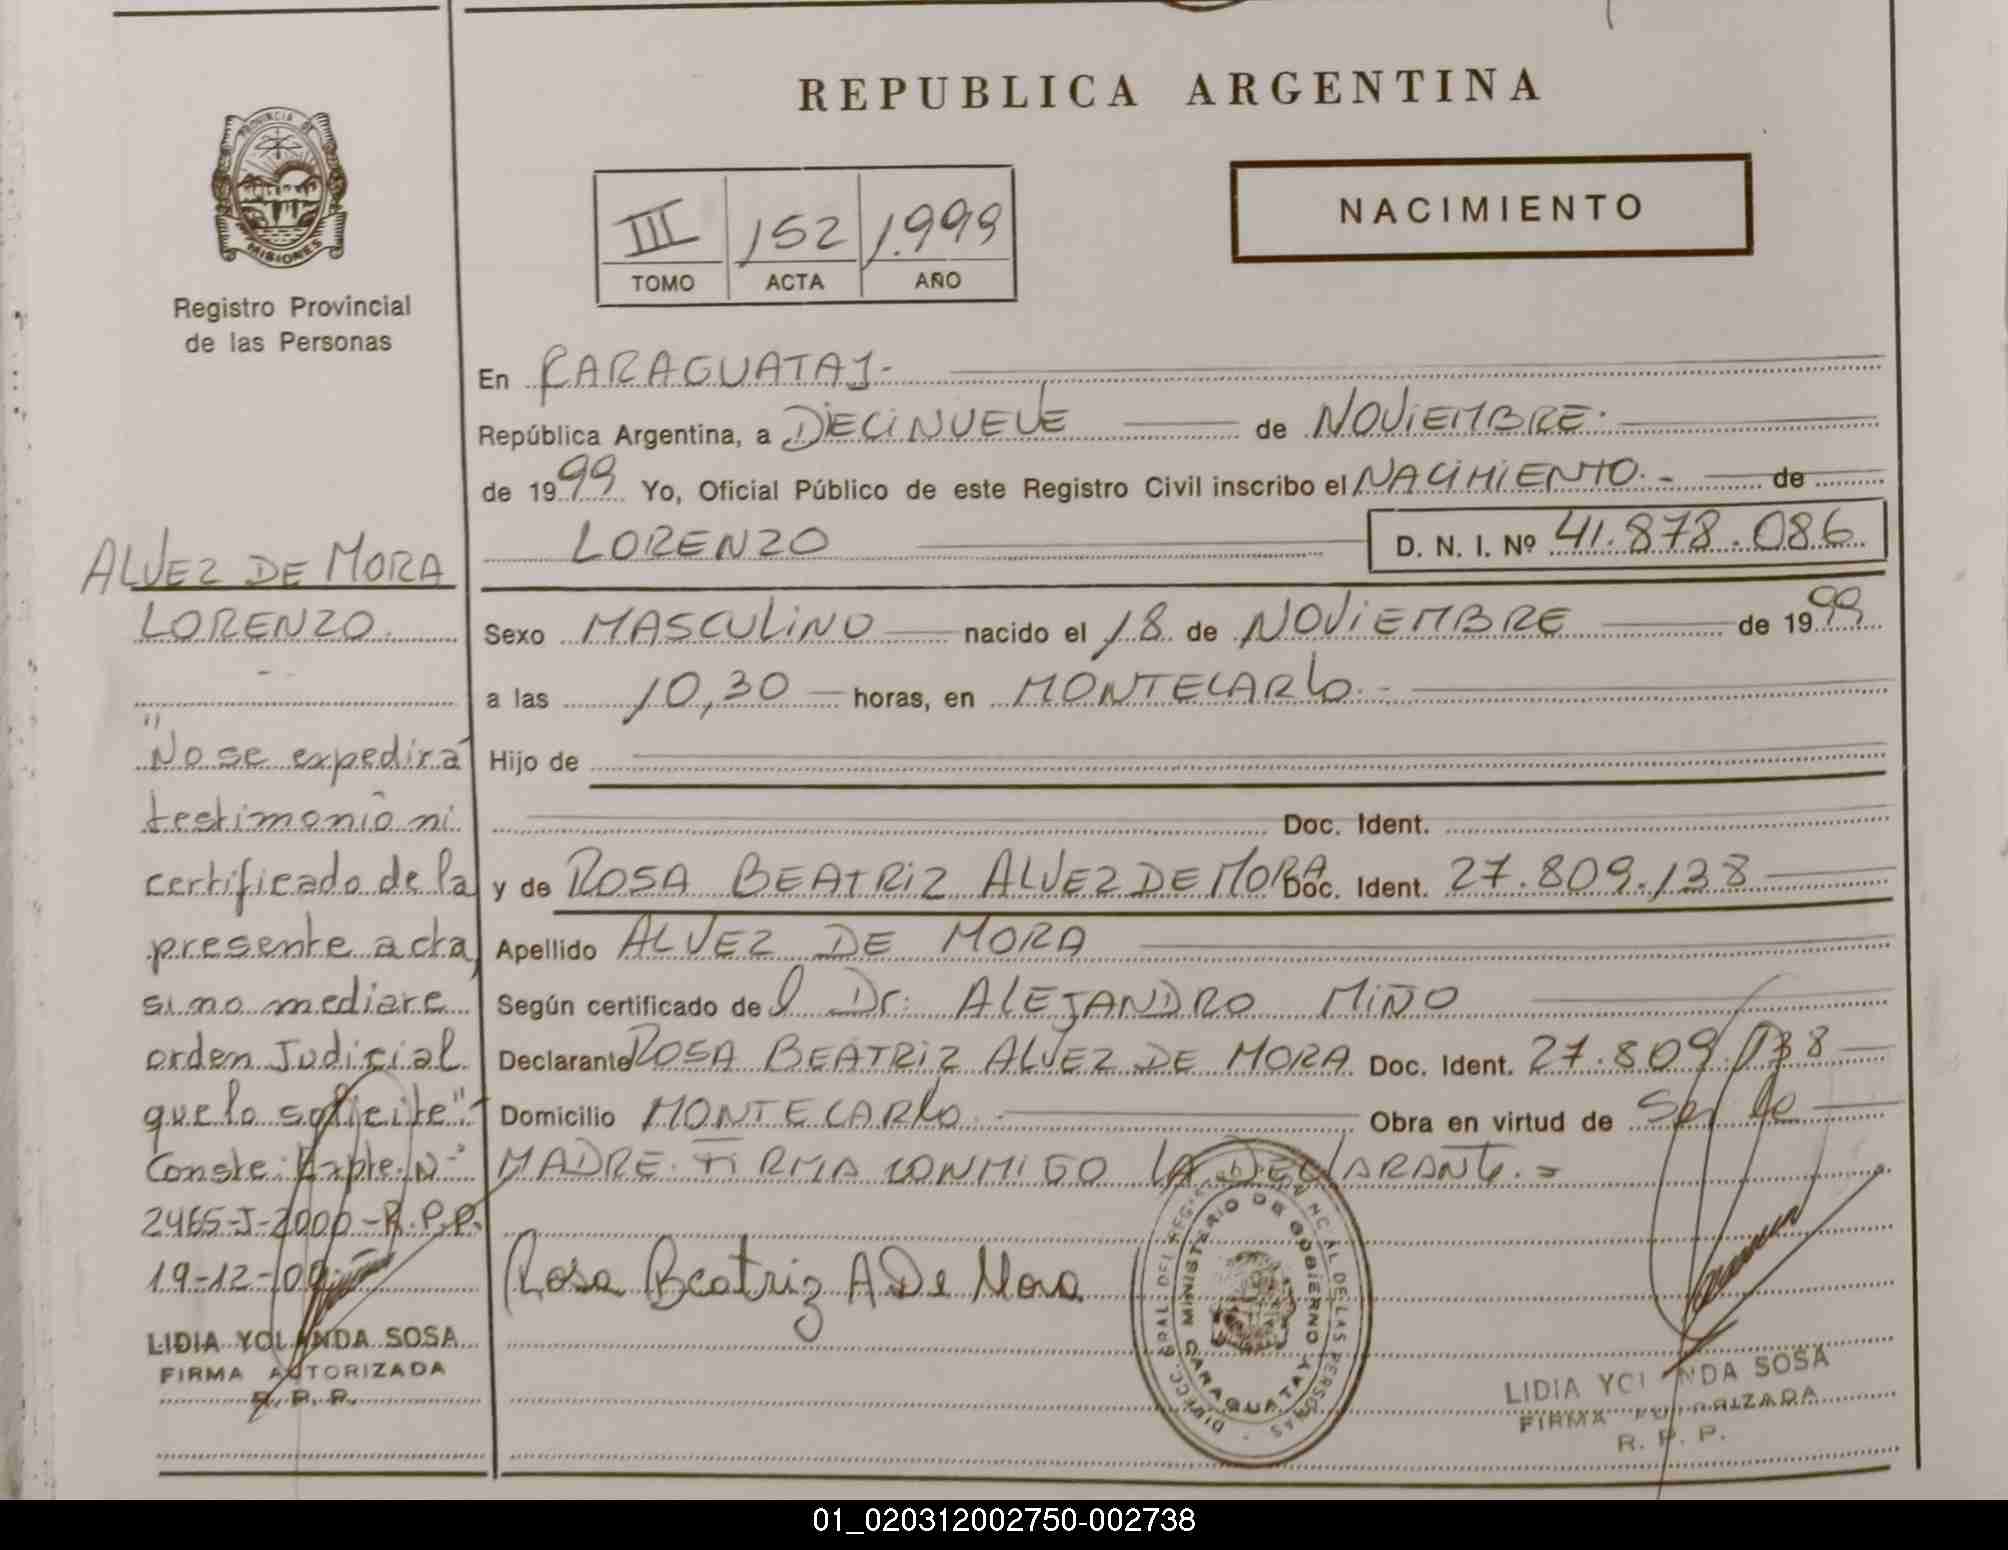 REPUBLICA ARGENTINA
PROVINCIA DE
MISIONES
Registro Provincial
de las Personas
III 152 1.999
TOMO ACTA AÑO
NACIMIENTO
En CARAGUATAY.-
República Argentina, a DIECINUEVE de NOVIEMBRE.
de 1999 Yo, Oficial Público de este Registro Civil inscribo el NACIMIENTO.- de
LORENZO D. N. I. Nº 41.878.086
Sexo MASCULINO nacido el 18 de NOVIEMBRE de 1999
a las 10,30 horas, en MONTECARLO.-
Hijo de
Doc. Ident.
y de ROSA BEATRIZ ALVEZ DE MORA Doc. Ident. 27.809.138
Apellido ALVEZ DE MORA
Según certificado del Dr: ALEJANDRO MIÑO
Declarante ROSA BEATRIZ ALVEZ DE MORA Doc. Ident. 27.809.138
Domicilio MONTECARLO. Obra en virtud de Ser la
MADRE. FIRMA CONMIGO LA DECLARANTE.=
Rosa Beatriz A De Mora
MINISTERIO DE GOBIERNO
CARAGUATAY
LIDIA YOLANDA SOSA
FIRMA AUTORIZADA
R. P. P.
ALVEZ DE MORA
LORENZO.
-
"No se expedirá
testimonio ni
certificado de la
presente acta,
si no mediare
orden Judicial
que lo solicite".-
Conste: Expte. Nº
2465-J-2000-R.P.P.
19-12-00
LIDIA YOLANDA SOSA
FIRMA AUTORIZADA
R. P. P.
01_020312002750-002738